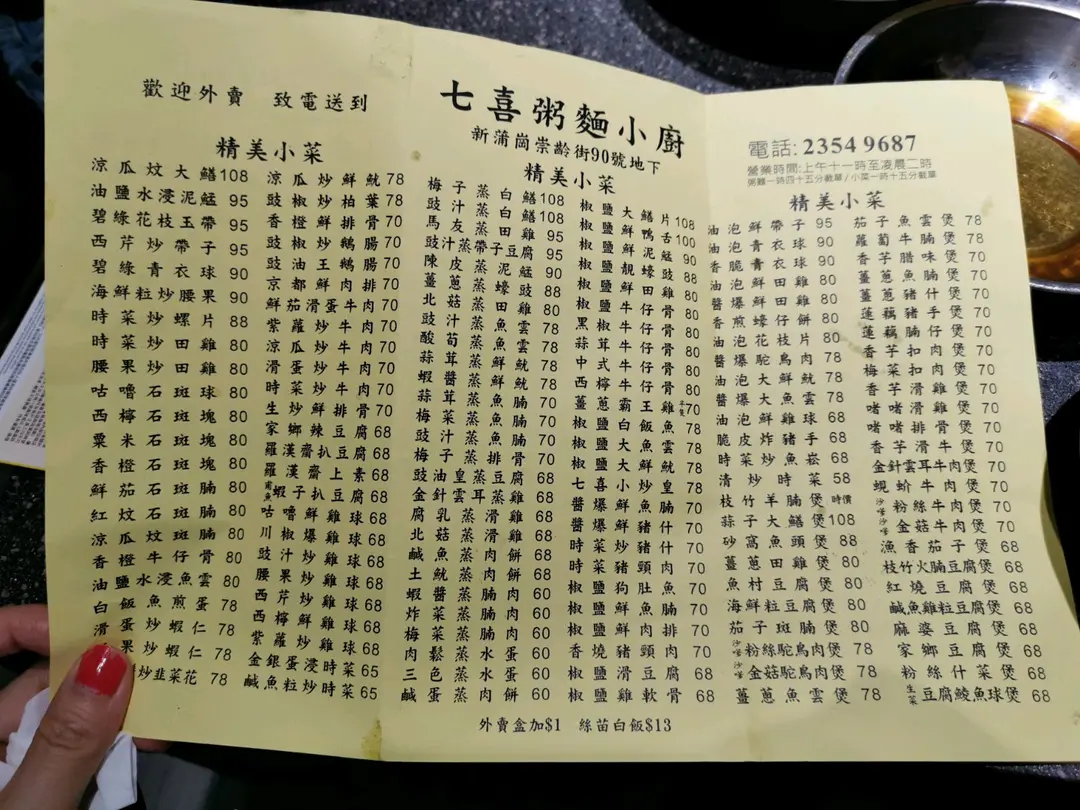 歡迎外賣 致電送到
七喜粥麵小廚
新蒲崗崇齡街90號地下
電話: 2354 9687
營業時間:上午十一時至凌晨二時
粥麵一時四十五分截單/小菜一時十五分截單
精美小菜
涼瓜炆大鱔108
油鹽水浸泥鯭 95
碧綠花枝玉帶 95
西芹炒帶子 95
碧綠青衣球 90
海鮮粒炒腰果 90
時菜炒螺片 88
時菜炒田雞 80
腰果炒田雞 80
咕嚕石斑球 80
西檸石斑塊 80
粟米石斑塊 80
香橙石斑塊 80
鮮茄石斑腩 80
紅炆石斑腩 80
涼瓜炆斑腩 80
香橙牛仔骨 80
油鹽水浸魚雲 80
白飯魚煎蛋 78
滑蛋炒蝦仁 78
果炒蝦仁 78
炒韭菜花 78
涼瓜炒鮮魷 78
豉椒炒柏葉 78
香橙鮮排骨 70
豉椒炒鵝腸 70
豉油王鵝腸 70
京都鮮肉排 70
鮮茄滑蛋牛肉 70
紫蘿炒牛肉 70
涼瓜炒牛肉 70
滑蛋炒牛肉 70
時菜炒牛肉 70
生炒鮮排骨 70
家鄉辣豆腐 68
羅漢齋扒豆腐 68
羅漢齋上素 68
蝦子扒豆腐 68
咕嚕鮮雞球 68
川椒爆雞球 68
豉汁炒雞球 68
腰果炒雞球 68
西芹炒雞球 68
西檸鮮雞球 68
紫蘿炒雞球 68
金銀蛋浸時菜 65
鹹魚粒炒時菜 65
精美小菜
梅子蒸白鱔 108
豉汁蒸白鱔 108
馬友蒸田雞 95
豉汁蒸帶子豆腐 95
陳皮蒸泥鯭 90
薑蔥蒸蠔豉 88
北菇蒸田雞 80
豉汁蒸魚雲 78
酸筍蒸魚雲 78
蒜茸蒸鮮魷 78
蝦醬蒸鮮魷 78
蒜茸蒸魚腩 70
梅菜蒸魚腩 70
豉汁蒸魚腩 70
梅子蒸排骨 70
豉油皇蒸豆腐 68
金針雲耳蒸雞 68
腐乳蒸滑雞 68
北菇蒸滑雞 68
鹹魚蒸肉餅 68
土魷蒸肉餅 68
蝦醬蒸腩肉 60
炸菜蒸腩肉 60
梅菜蒸腩肉 60
肉鬆蒸水蛋 60
三色蒸水蛋 60
鹹蛋蒸肉餅 60
椒鹽大鱔片 108
椒鹽鮮鴨舌 100
椒鹽泥鯭 90
椒鹽靚蠔豉 88
椒鹽鮮田雞 80
椒鹽牛仔骨 80
黑椒牛仔骨 80
蒜茸牛仔骨 80
中式牛仔骨 80
西檸牛仔骨 80
薑蔥霸王雞半隻70
椒鹽白飯魚 78
椒鹽大魚雲 78
椒鹽大鮮魷 78
七喜小炒皇 78
醬爆鮮魚腩 70
醬爆鮮豬什 70
時菜炒豬什 70
時菜豬頸肉 70
椒鹽狗肚魚 70
椒鹽鮮魚腩 70
椒鹽鮮肉排 70
香燒豬頸肉 70
椒鹽滑豆腐 68
椒鹽雞軟骨 68
精美小菜
油泡鮮帶子 95
油泡青衣球 90
香脆青衣球 90
油泡鮮田雞 80
醬爆鮮田雞 80
香煎蠔仔餅 80
油泡花枝片 80
醬爆鴕鳥肉 78
油泡大鮮魷 78
醬爆大魚雲 78
油泡鮮雞球 68
脆皮炸豬手 68
時菜炒魚崧 68
清炒時菜 58
枝竹羊腩煲 時價
蒜子大鱔煲108
砂窩魚頭煲 88
薑蔥田雞煲 80
魚村豆腐煲 80
海鮮粒豆腐煲 80
茄子斑腩煲 80
沙嗲粉絲鴕鳥肉煲 78
沙嗲金菇鴕鳥肉煲 78
薑蔥魚雲煲 78
茄子魚雲煲 78
蘿蔔牛腩煲 78
香芋腊味煲 70
薑蔥魚腩煲 70
薑蔥豬什煲 70
蓮藕豬手煲 70
蓮藕腩仔煲 70
香芋扣肉煲 70
梅菜扣肉煲 70
香芋滑雞煲 70
啫啫滑雞煲 70
啫啫排骨煲 70
香芋滑牛煲 70
金針雲耳牛肉煲 70
蜆蚧牛肉煲 70
沙嗲粉絲牛肉煲 70
沙嗲金菇牛肉煲 70
漁香茄子煲 68
枝竹火腩豆腐煲 68
紅燒豆腐煲 68
鹹魚雞粒豆腐煲 68
麻婆豆腐煲 68
家鄉豆腐煲 68
粉絲什菜煲 68
生菜豆腐鯪魚球煲 68
外賣盒加$1 絲苗白飯$13